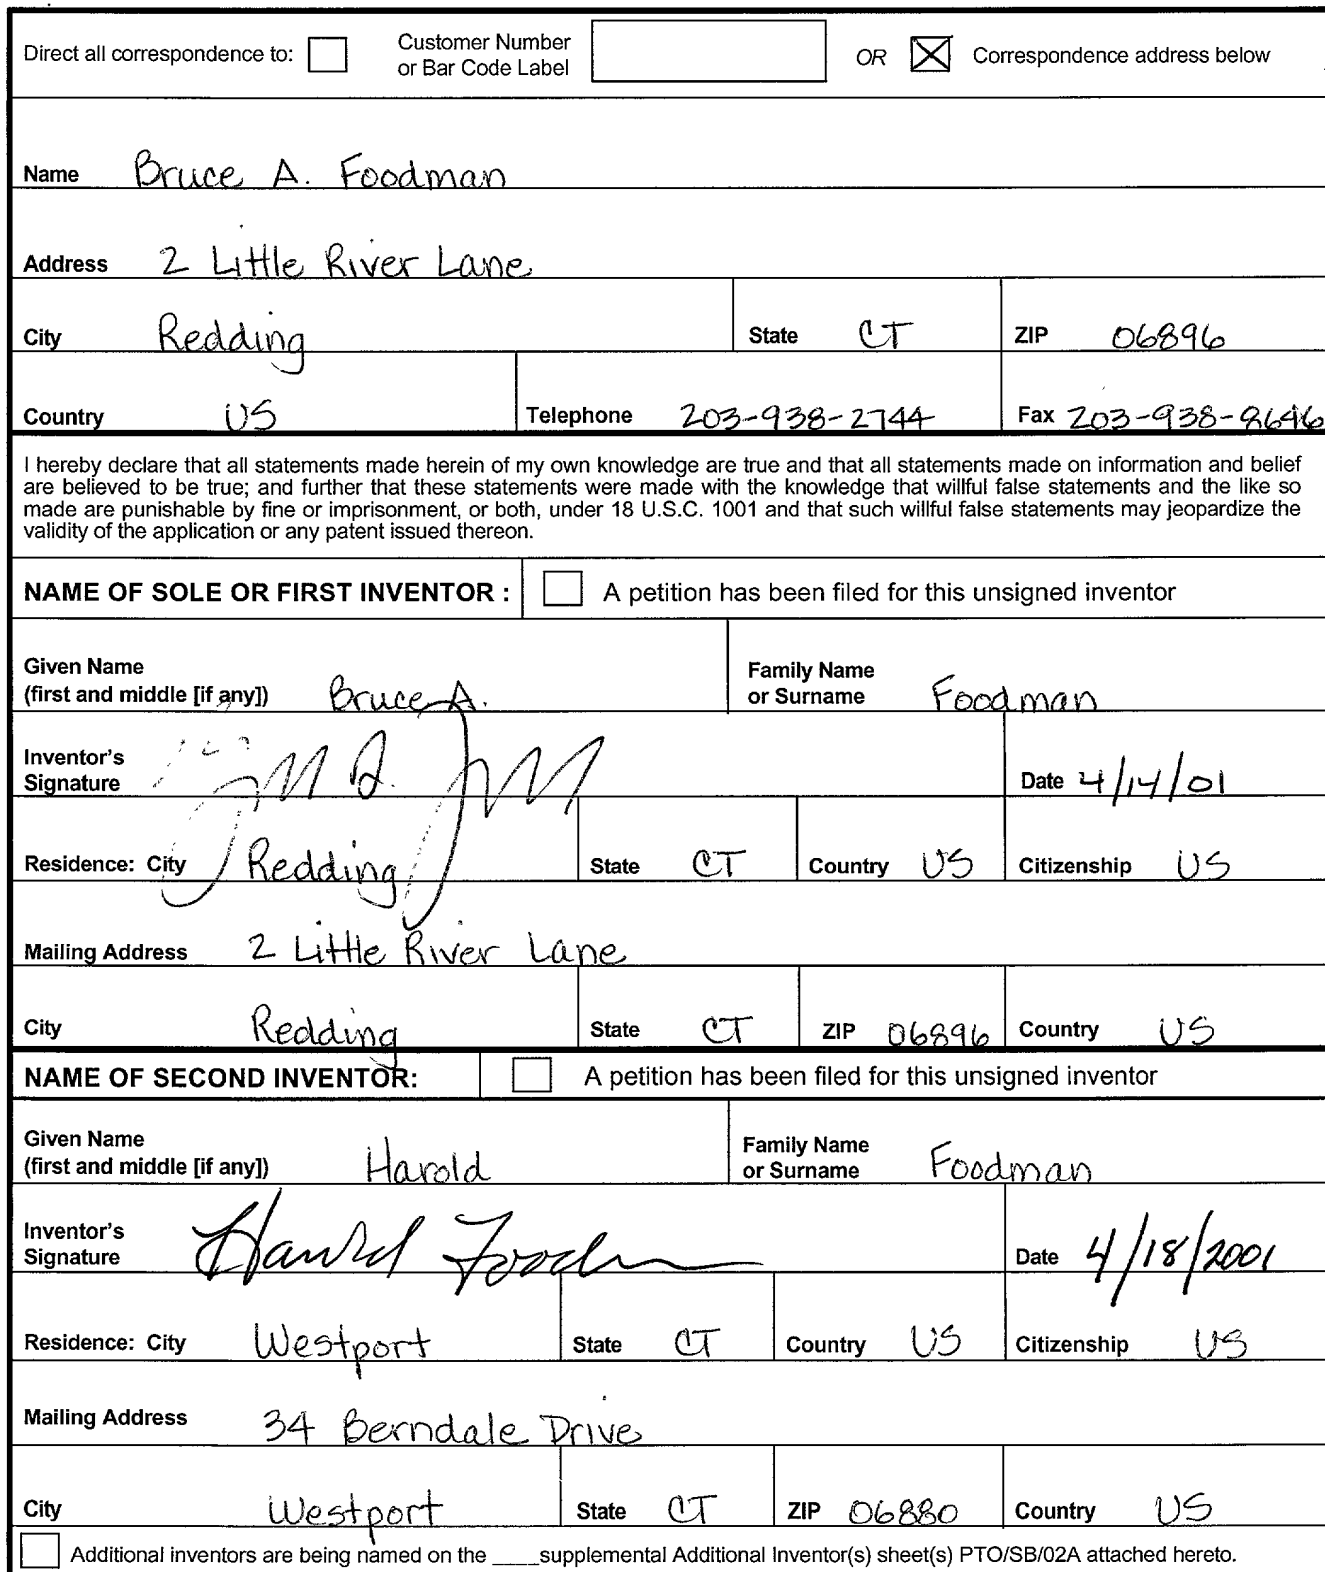 Direct all correspondence to: Customer Number or Bar Code Label OR Correspondence address below
Name Bruce A. Foodman
Address 2 Little River Lane
City Redding State CT ZIP 06896
Country US Telephone 203-938-2744 Fax 203-938-8646
I hereby declare that all statements made herein of my own knowledge are true and that all statements made on information and belief
are believed to be true; and further that these statements were made with the knowledge that willful false statements and the like so
made are punishable by fine or imprisonment, or both, under 18 U.S.C. 1001 and that such willful false statements may jeopardize the
validity of the application or any patent issued thereon.
NAME OF SOLE OR FIRST INVENTOR : A petition has been filed for this unsigned inventor
Given Name
(first and middle [if any]) Bruce A.
Family Name
or Surname Foodman
Inventor's
Signature
Date 4/14/01
Residence: City Redding State CT Country US Citizenship US
Mailing Address 2 Little River Lane
City Redding State CT ZIP 06896 Country US
NAME OF SECOND INVENTOR: A petition has been filed for this unsigned inventor
Given Name
(first and middle [if any]) Harold
Family Name
or Surname Foodman
Inventor's
Signature Harold Foodman
Date 4/18/2001
Residence: City Westport State CT Country US Citizenship US
Mailing Address 34 Berndale Drive
City Westport State CT ZIP 06880 Country US
Additional inventors are being named on the ____supplemental Additional Inventor(s) sheet(s) PTO/SB/02A attached hereto.